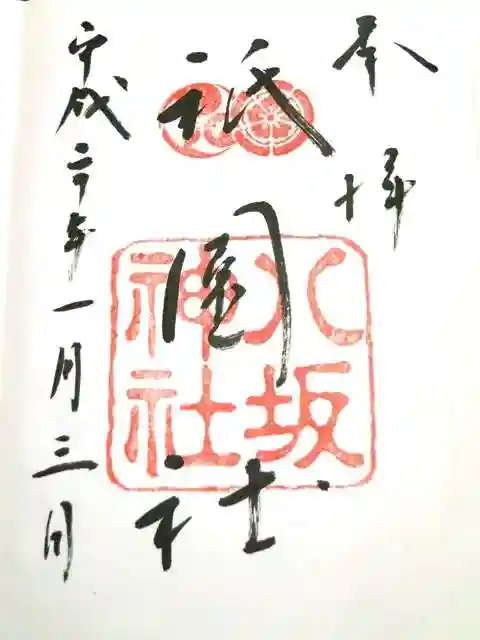 奉拝
祇園社
八坂
神社
平成二十年一月三日